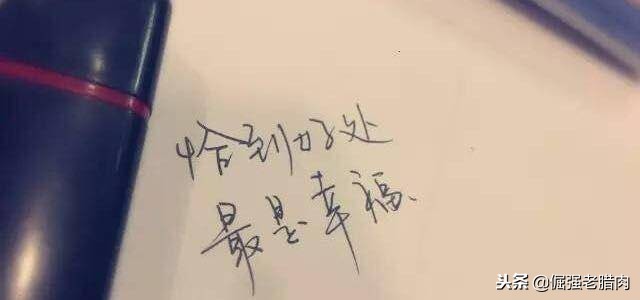 恰到好处
最是幸福
头条 @倔强老腊肉